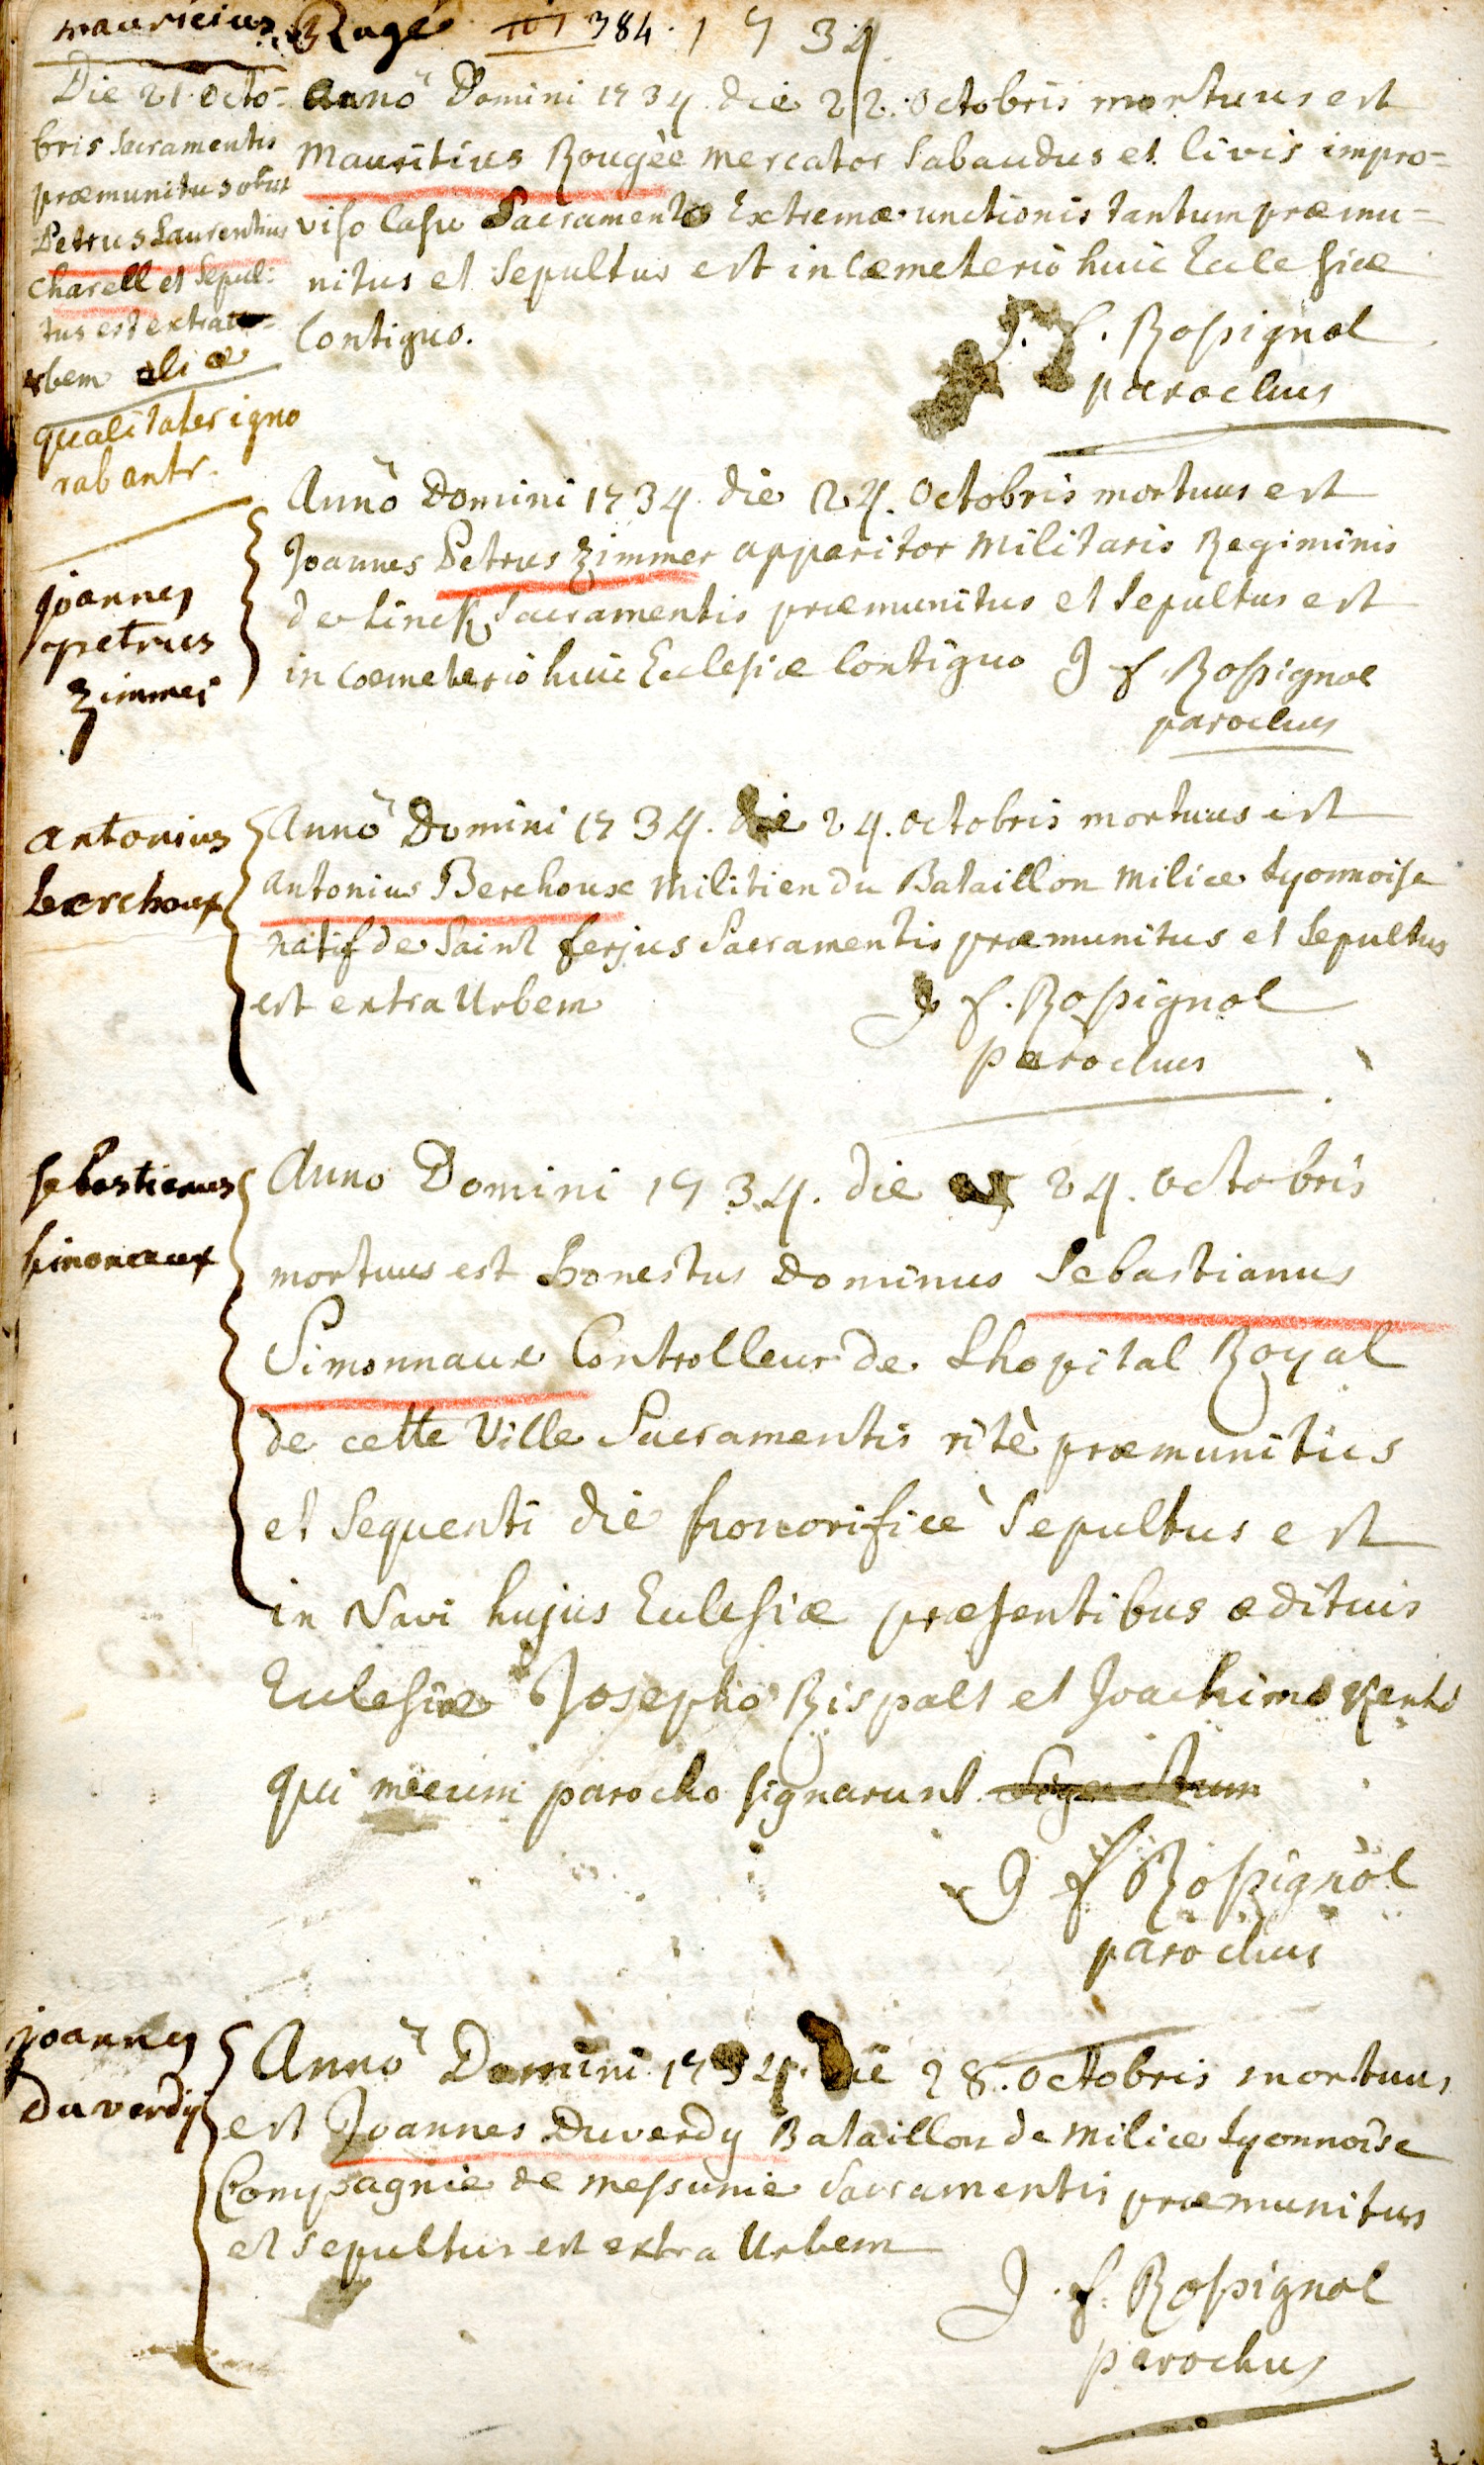 mauricius Rugé 384. 1734.
Die 21 octo-
bris sacramentis
præmunitus obiit
Petrus Laurentius
Charell et sepul-
tus est extra
urbem aliæ
qualitates igno
rabantr.
Annô Domini 1734 die 22. Octobris mortuus est
Mauritius Rougèe mercator Sabaudus et Civis impro-
viso Casu Sacramento Extremæ unctionis tantum præmu-
nitus et Sepultus est in Cæmeterio huic Ecclesiæ
Contiguo.
J. f. Rossignol
parochus
joannes
petrus
zimmer
Annô Domini 1734 die 24. Octobris mortuus est
Joannes Petrus Zimmer apparitor Militaris Regiminis
de Linck Sacramentis præmunitus et Sepultus est
in Coemeterio huic Ecclesiæ Contiguo J f Rossignol
parochus
antonius
berchoux
Annô Domini 1734. die 24. octobris mortuus est
antonius Berchoux Militien du Bataillon Milice Lyonnoise
natif de Saint ferjus Sacramentis præmunitus et Sepultus
est extra Urbem
J f. Rossignol
parochus
sebastianus
simoneaux
Anno Domini 1734. die 24. octobris
mortuus est honestus Dominus Sebastianus
Simonnaux Controlleur de Lhopital Royal
de cette Ville Sacramentis ritè præmunitus
et Sequenti die honorificè Sepultus est
in Navi hujus Ecclesiæ præsentibus ædituis
Ecclesiæ Josepho Rispalt et Joachimo
qui mecum parocho signarunt
J f Rossignol
parochus
joannes
duverdÿ
Annô Domini 1734. die 28. octobris mortuus
est Joannes Duverdy Bataillon de Milice Lyonnoise
Compagnie de Messimie Sacramentis præmunitus
et sepultus est extra Urbem
J. f. Rossignol
parochus